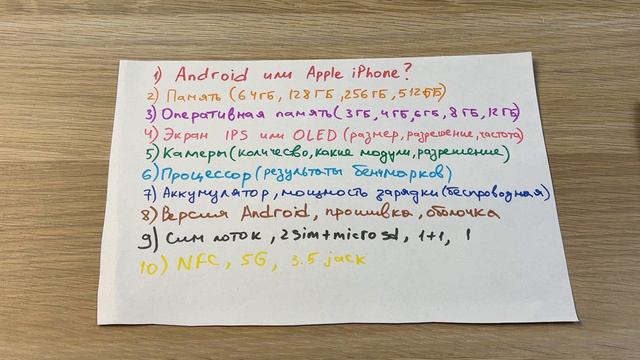 1) Android или Apple iPhone?
2) Память (64ГБ, 128ГБ, 256ГБ, 512ГБ)
3) Оперативная память (3ГБ, 4ГБ, 6ГБ, 8ГБ, 12ГБ)
4) Экран IPS или OLED (размер, разрешение, частота)
5) Камеры (количество, какие модули, разрешение)
6) Процессор (результаты бенчмарков)
7) Аккумулятор, мощность зарядки (беспроводная)
8) Версия Android, прошивка, оболочка
9) Сим лоток, 2Sim+microsd, 1+1, 1
10) NFC, 5G, 3.5 jack